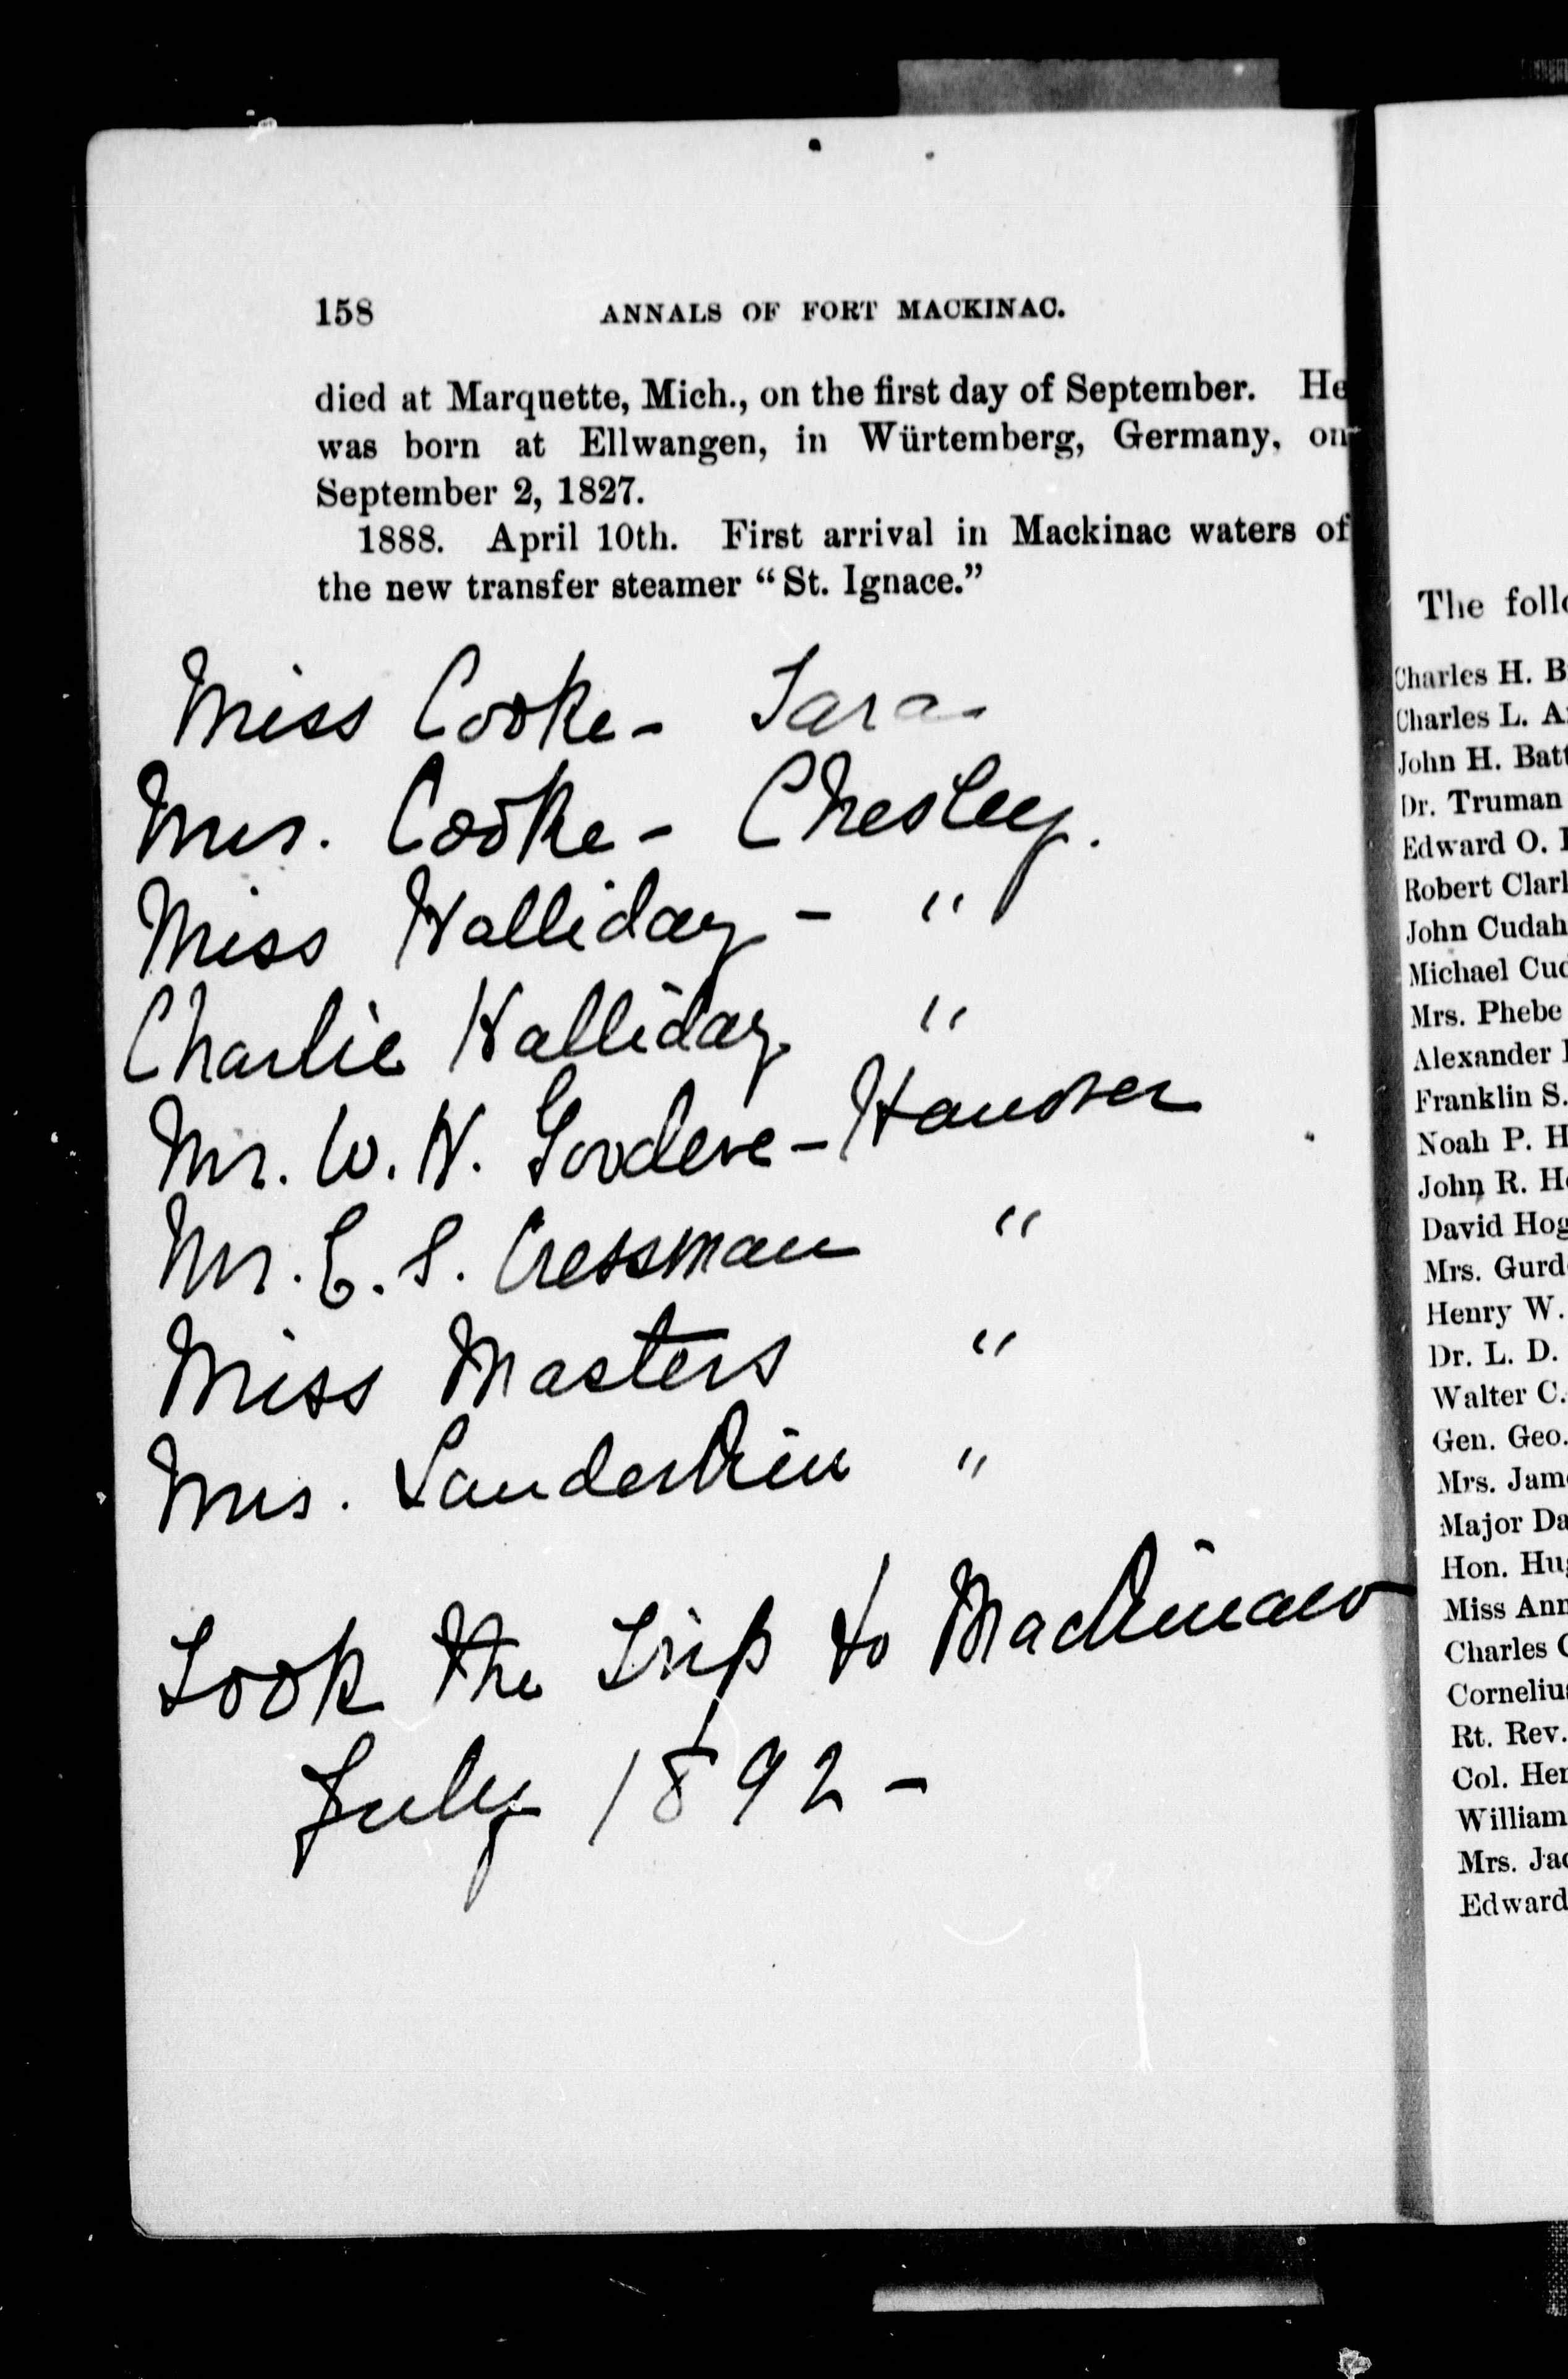 158 ANNALS OF FORT MACKINAC.
died at Marquette, Mich., on the first day of September. He
was born at Ellwangen, in Würtemberg, Germany, on
September 2, 1827.
1888. April 10th. First arrival in Mackinac waters of
the new transfer steamer “St. Ignace.”
Miss Cooke - Tara -
Mrs. Cooke - Chesley.
Miss Halliday - "
Charlie Halliday "
Mr. W. H. Goodeve - Hanover
Mr. E. S. Cressman "
Miss Masters "
Mrs. Landerkin "
Took the Trip to Mackinaw
July 1892 -
The follo
Charles H. B
Charles L. A
John H. Batt
Dr. Truman
Edward O.
Robert Clar
John Cudah
Michael Cud
Mrs. Phebe
Alexander
Franklin S.
Noah P. H
John R. H
David Hog
Mrs. Gurd
Henry W.
Dr. L. D.
Walter C.
Gen. Geo.
Mrs. Jam
Major Da
Hon. Hu
Miss Ann
Charles C
Cornelius
Rt. Rev.
Col. Her
William
Mrs. Jac
Edward